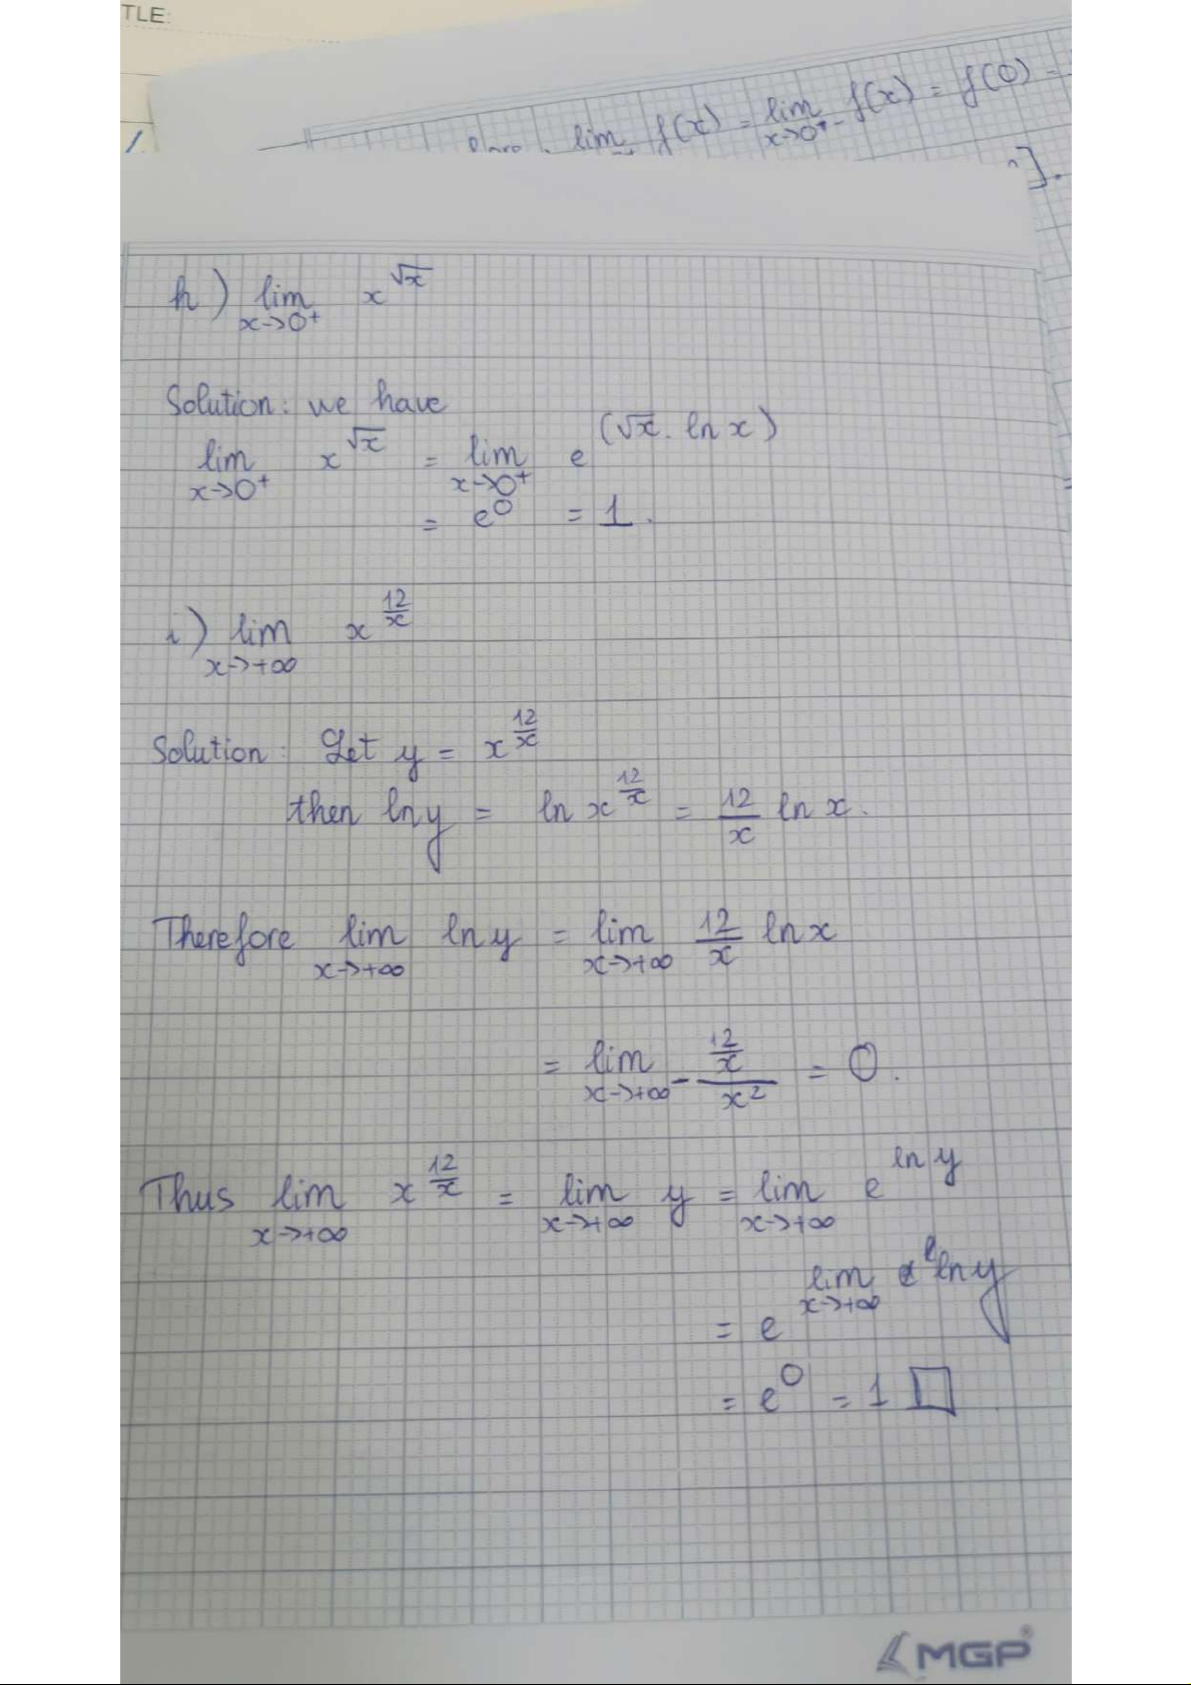 TLE:
lim f(x) = lim f(x) = f(0) =
x→0⁺
].
h) lim x^√x
x→0⁺
Solution: we have
lim x^√x = lim e^(√x. ln x)
x→0⁺ x→0⁺
= e^0 = 1.
i) lim x^(12/x)
x→+∞
Solution: Let y = x^(12/x)
then ln y = ln x^(12/x) = 12/x ln x.
Therefore lim ln y = lim 12/x ln x
x→+∞ x→+∞
= lim - (12/x)/x² = 0.
x→+∞
Thus lim x^(12/x) = lim y = lim e^(ln y)
x→+∞ x→+∞ x→+∞
= e^(lim ln y)
x→+∞
= e^0 = 1 □
MGP®